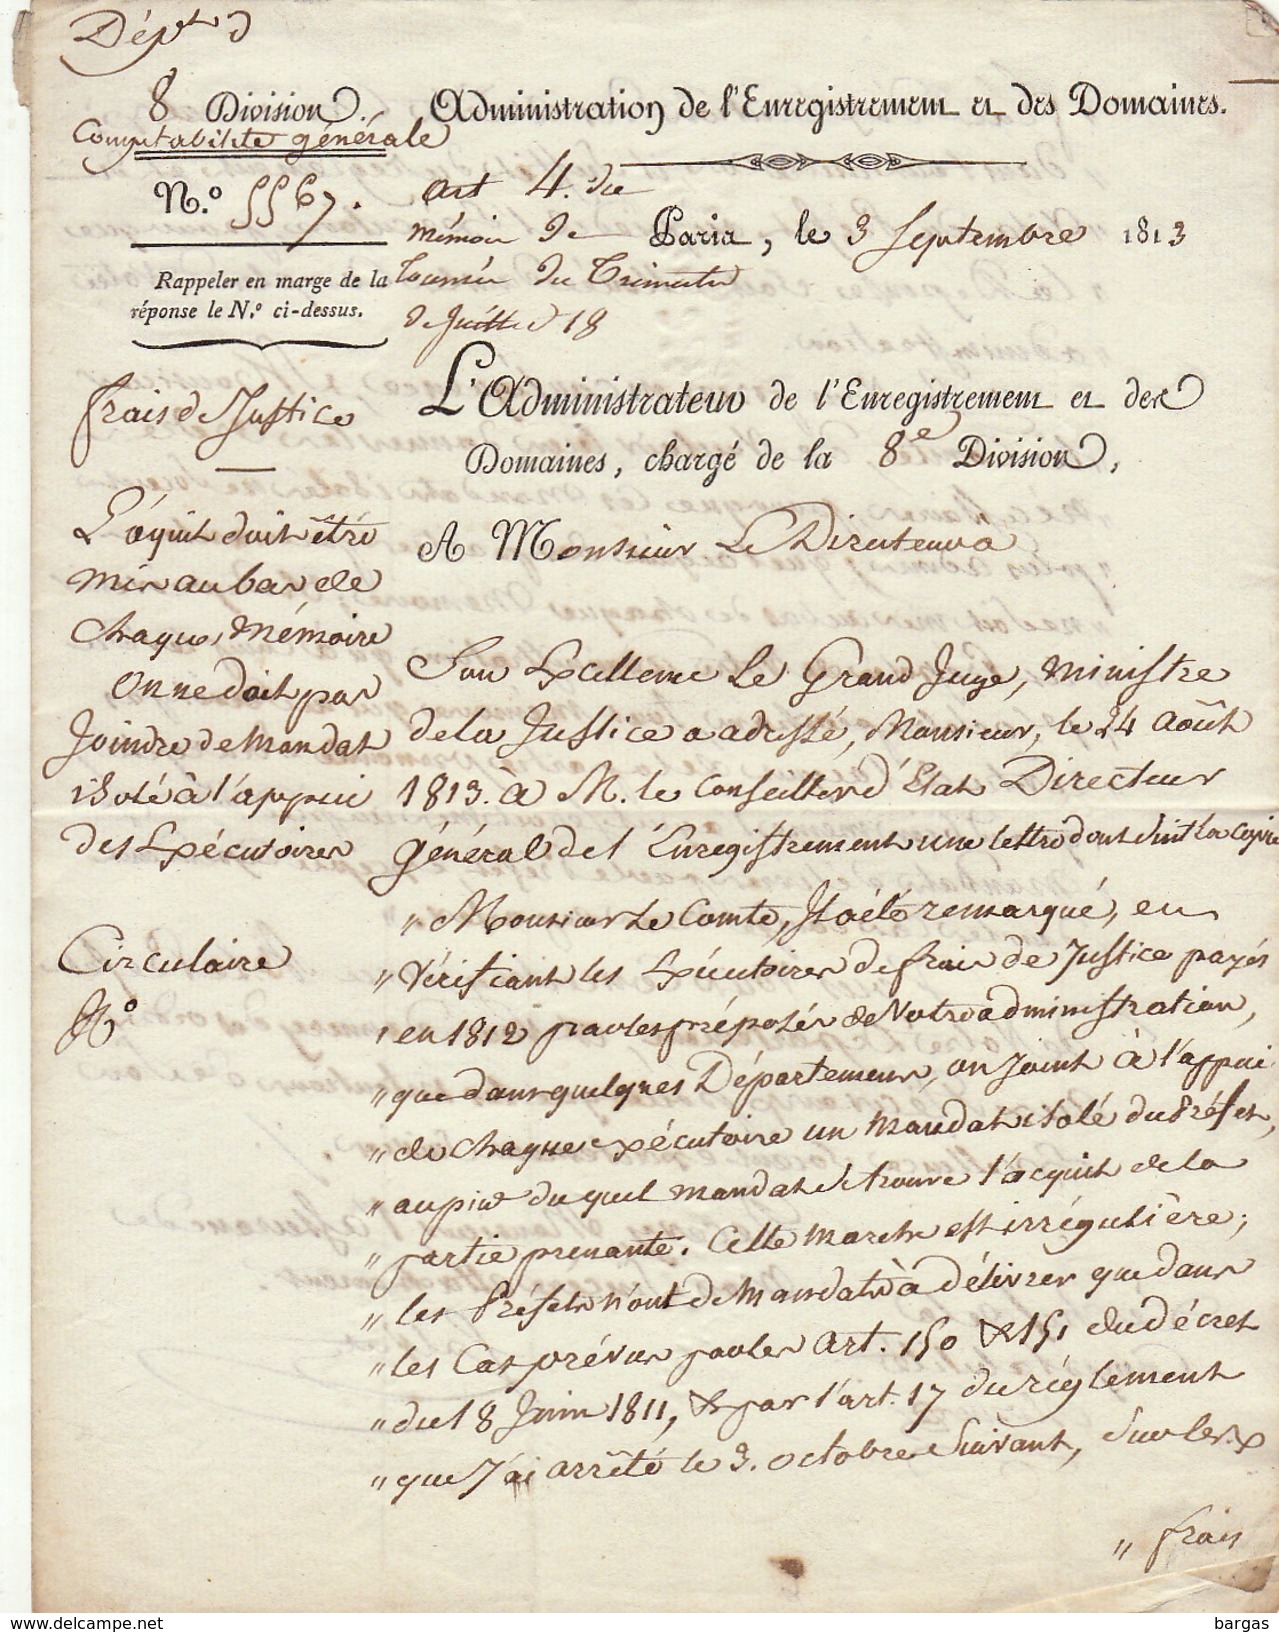 Dépt. d
8 Division. Administration de l'Enregistrement et des Domaines.
Comptabilité générale
N.º 5567. Art 4. du
mémoire de Paris, le 3 Septembre 1813
Rappeler en marge de la
réponse le N.º ci-dessus.
Tournée du Trimestre
de Juillet 18
L'Administrateur de l'Enregistrement et des
Domaines, chargé de la 8e Division,
frais de Justice
A Monsieur Le Directeur a
L'aquit doit être
mis au bas de
chaque Mémoire
On ne doit pas
Joindre de Mandat
isolé à l'appui
des Exécutoires
Circulaire
Nº
Son Excellence Le Grand Juge, Ministre
de la Justice a adressé, Monsieur, le 24 Août
1813. à M. le Conseiller d'Etat Directeur
Général de l'Enregistrement une lettre dont suit la copie
" Monsieur Le Comte, Il a été remarqué, en
" Vérifiant les Exécutoires de frais de Justice payés
" en 1812 par les préposés de Votre administration,
" que dans quelques Départemens, on Joint à l'appui
" de chaque exécutoire un Mandat isolé du Préfet,
" au pied du quel mandat se trouve l'acquit de la
" partie prenante. Cette marche est irrégulière;
" les Préfets n'ont de Mandats à délivrer que dans
" les Cas prévus par les Art. 150 & 151 du décret
" du 18 Juin 1811, & par l'art. 17 du réglement
" que J'ai arrêté le 3. octobre Suivant, Sur les
" frais
www.delcampe.net
bargas